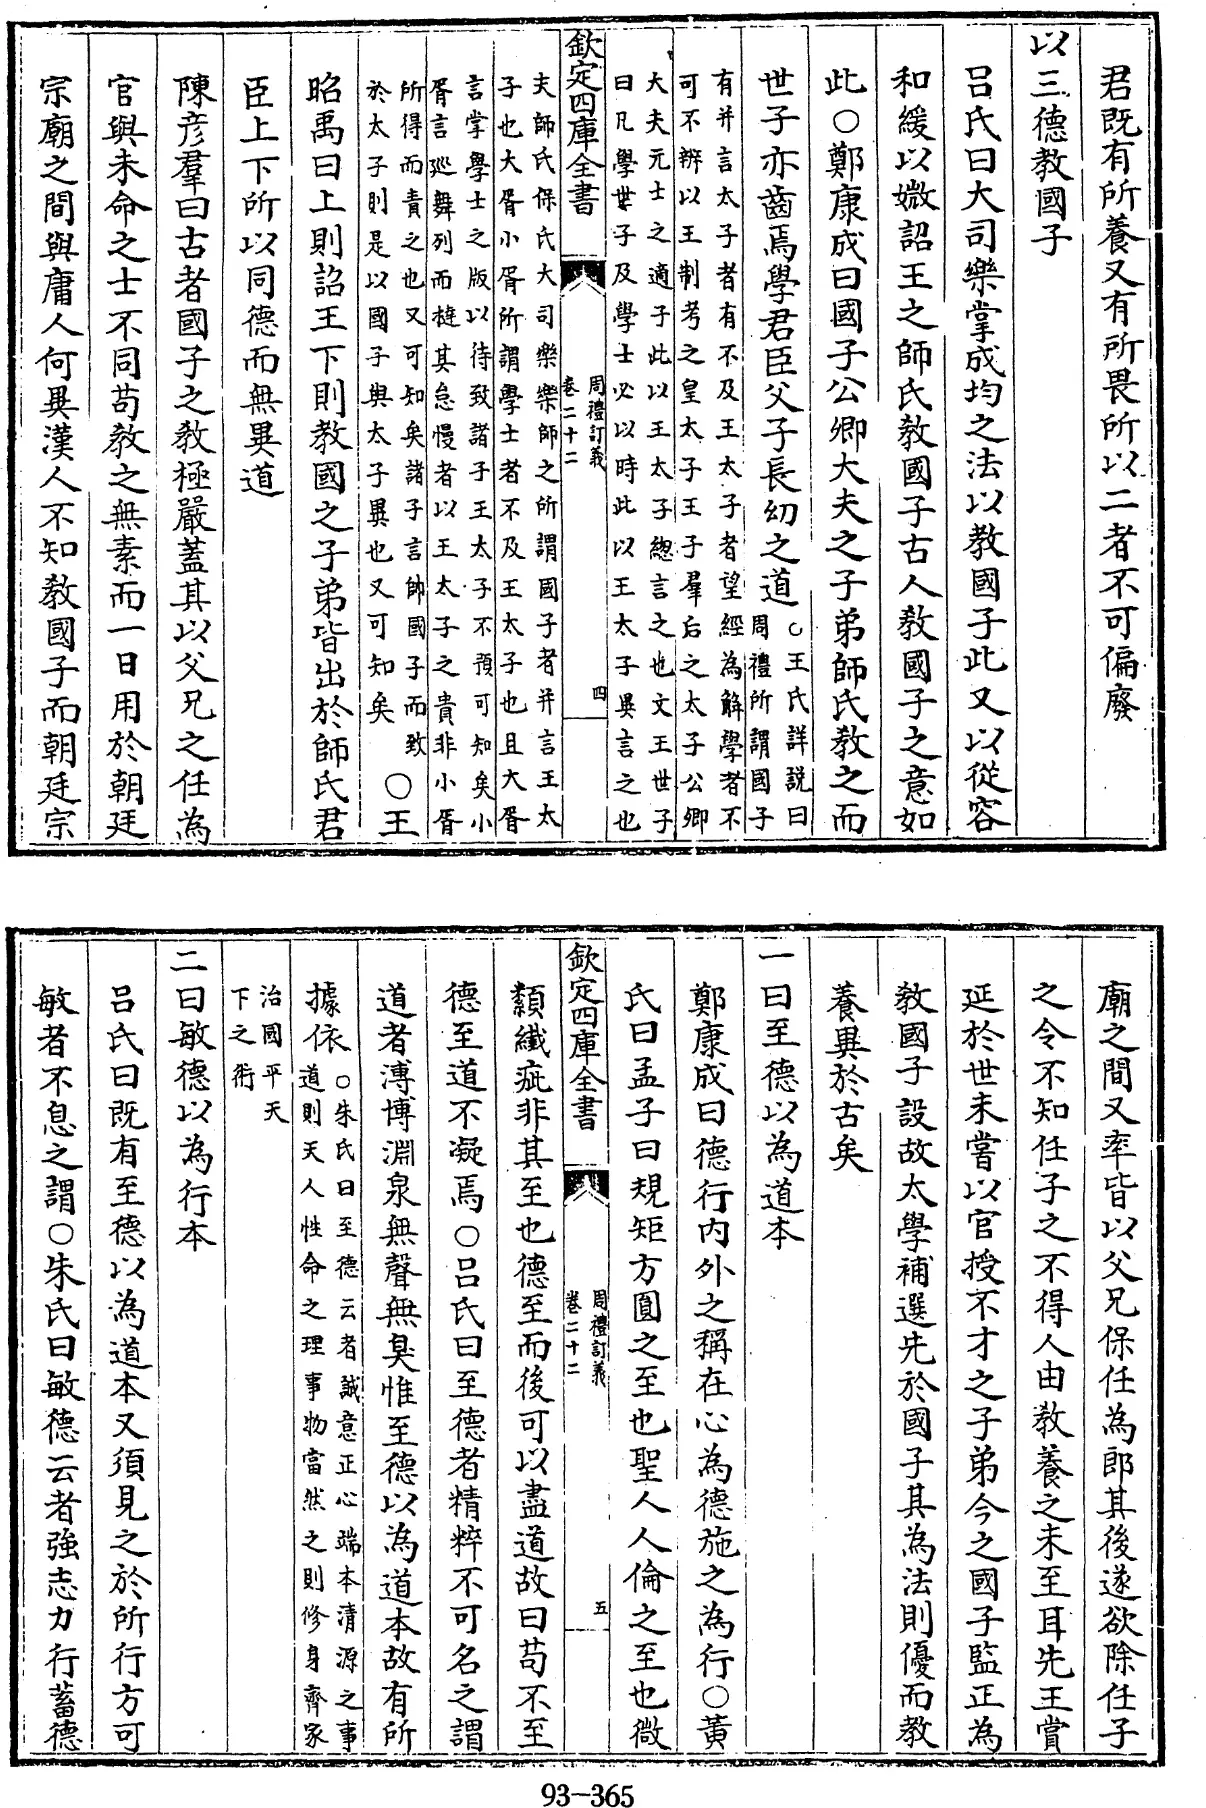 君既有所養又有所畏所以二者不可偏廢
以三德教國子
吕氏曰大司樂掌成均之法以教國子此又以從容
和緩以媺詔王之師氏教國子古人教國子之意如
此○鄭康成曰國子公卿大夫之子弟師氏教之而
世子亦齒焉學君臣父子長幼之道○王氏詳説曰
周禮所謂國子
有并言太子者有不及王太子者望經為解學者不
可不辨以王制考之皇太子王子羣后之太子公卿
大夫元士之適子此以王太子總言之也文王世子
曰凡學世子及學士必以時此以王太子異言之也
欽定四庫全書
周禮訂義
卷二十二
四
夫師氏保氏大司樂樂師之所謂國子者并言王太
子也大胥小胥所謂學士者不及王太子也且大胥
言掌學士之版以待致諸子王太子不預可知矣小
胥言廵舞列而撻其怠慢者以王太子之貴非小胥
所得而責之也又可知矣諸子言帥國子而致
於太子則是以國子與太子異也又可知矣○王
昭禹曰上則詔王下則教國之子弟皆出於師氏君
臣上下所以同德而無異道
陳彦羣曰古者國子之教極嚴蓋其以父兄之任為
官與未命之士不同苟教之無素而一日用於朝廷
宗廟之間與庸人何異漢人不知教國子而朝廷宗
廟之間又率皆以父兄保任為郎其後遂欲除任子
之令不知任子之不得人由教養之未至耳先王賞
延於世未嘗以官授不才之子弟今之國子監正為
教國子設故太學補選先於國子其為法則優而教
養異於古矣
一曰至德以為道本
鄭康成曰德行内外之稱在心為德施之為行○黄
氏曰孟子曰規矩方圓之至也聖人人倫之至也微
欽定四庫全書
周禮訂義
卷二十二
五
纇纖疵非其至也德至而後可以盡道故曰苟不至
德至道不凝焉○吕氏曰至德者精粹不可名之謂
道者溥博淵泉無聲無臭惟至德以為道本故有所
據依○朱氏曰至德云者誠意正心端本清源之事
道則天人性命之理事物當然之則修身齊家
治國平天
下之術
二曰敏德以為行本
吕氏曰既有至德以為道本又須見之於所行方可
敏者不息之謂○朱氏曰敏德云者強志力行蓄德
93-365